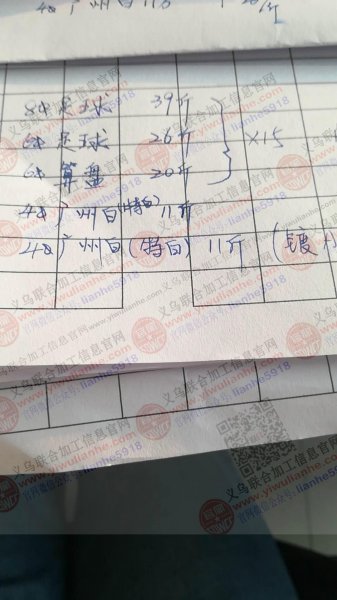 4# 广州白 11斤
8# 足球 39斤
6# 足球 26斤 ×15
6# 算盘 20斤
4# 广州白(特白) 11斤
4# 广州白(特白) 11斤 (镀
义乌联合加工信息官网
www.yiwulianhe.com
官网微信公众号:lianhe5918